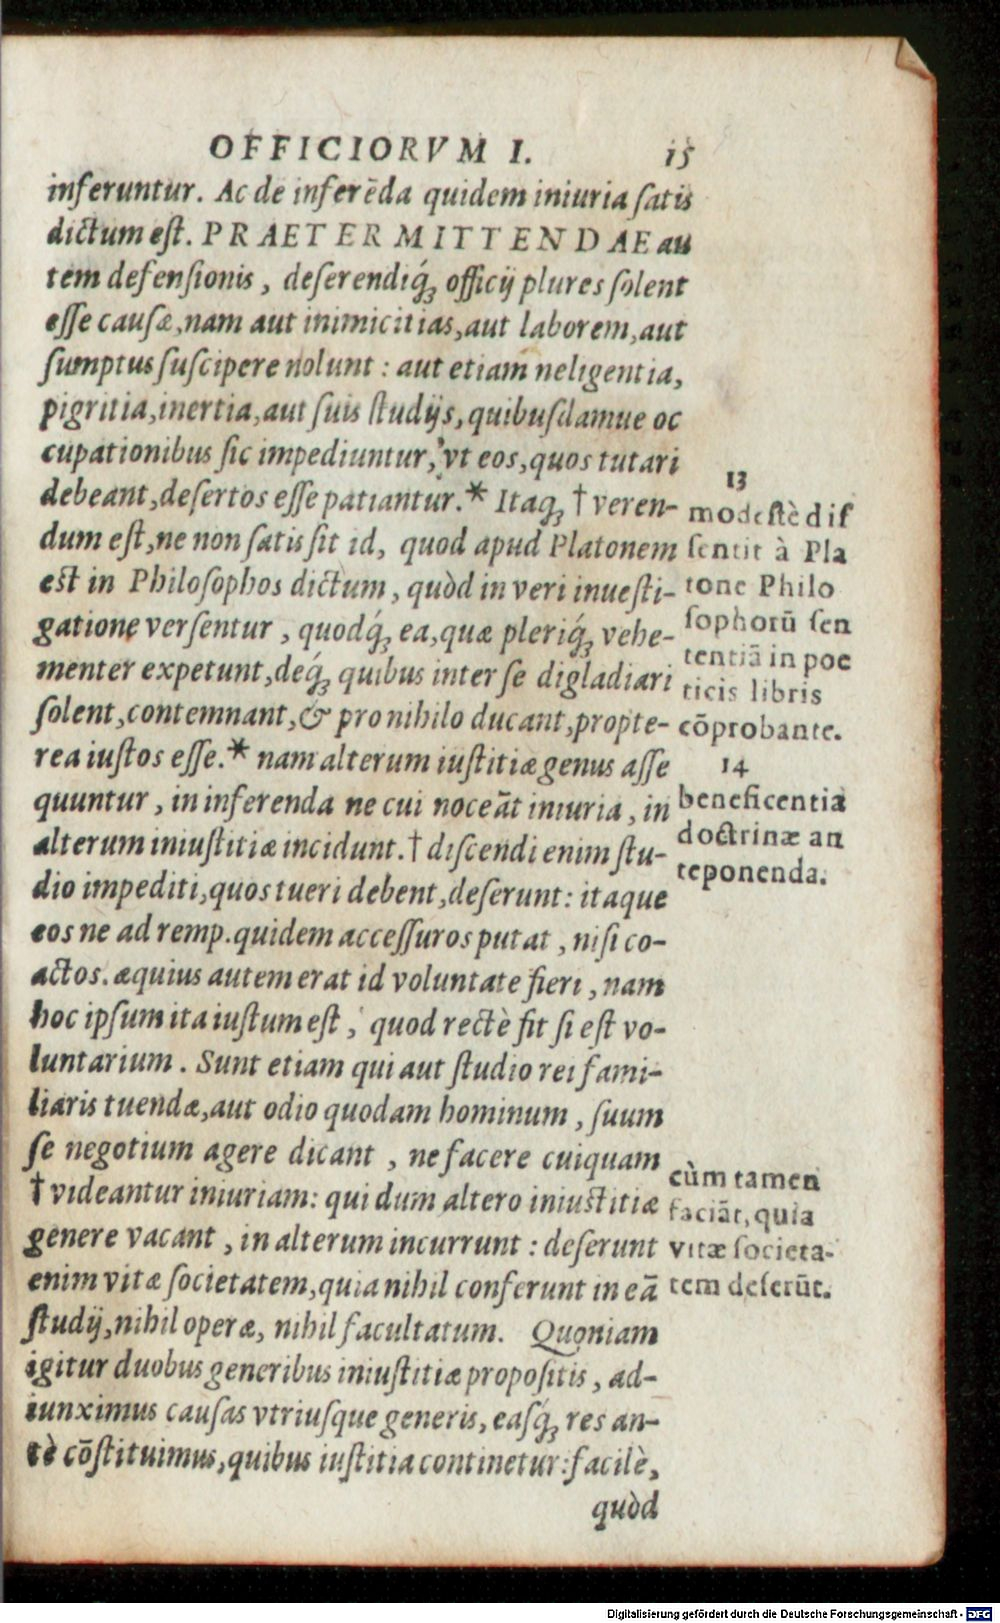 OFFICIORVM I. 15
inferuntur. Ac de inferēda quidem iniuria ſatis
dictum eſt. PRAETERMITTENDAE au
tem defenſionis, deſerendiq́ꝫ officij plures ſolent
eſſe cauſæ, nam aut inimicitias, aut laborem, aut
ſumptus ſuſcipere nolunt: aut etiam neligentia,
pigritia, inertia, aut ſuis ſtudijs, quibuſdamue oc
cupationibus ſic impediuntur, vt eos, quos tutari
debeant, deſertos eſſe patiantur.* Itaqꝫ † veren-
dum eſt, ne non ſatis ſit id, quod apud Platonem
est in Philoſophos dictum, quòd in veri inueſti-
gatione verſentur, quodq́ꝫ ea, quæ pleriq́ꝫ vehe-
menter expetunt, deq́ꝫ quibus inter ſe digladiari
ſolent, contemnant, & pro nihilo ducant, propte-
rea iuſtos eſſe.* nam alterum iuſtitiæ genus aſſe
quuntur, in inferenda ne cui noceāt iniuria, in
alterum iniuſtitiæ incidunt. † diſcendi enim ſtu-
dio impediti, quos tueri debent, deſerunt: itaque
eos ne ad remp. quidem acceſſuros putat, niſi co-
actos. æquius autem erat id voluntate fieri, nam
hoc ipſum ita iuſtum eſt, quod rectè fit ſi eſt vo-
luntarium. Sunt etiam qui aut ſtudio rei fami-
liaris tuendæ, aut odio quodam hominum, ſuum
ſe negotium agere dicant, ne facere cuiquam
† videantur iniuriam: qui dum altero iniustitiæ
genere vacant, in alterum incurrunt: deſerunt
enim vitæ ſocietatem, quia nihil conferunt in eā
ſtudij, nihil operæ, nihil facultatum. Quoniam
igitur duobus generibus iniuſtitiæ propoſitis, ad-
iunximus cauſas vtriuſque generis, eaſq́ꝫ res an-
tè cōſtituimus, quibus iuſtitia continetur: facilè,
quòd
13
modeſtè diſ
ſentit à Pla
tone Philo
ſophorū ſen
tentiā in poe
ticis libris
cōprobante.
14
beneficentia
doctrinæ an
teponenda.
cùm tamen
faciāt, quia
vitæ ſocieta-
tem deſerūt.
Digitalisierung gefördert durch die Deutsche Forschungsgemeinschaft - DFG